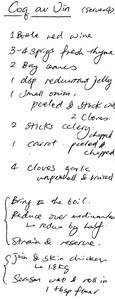 Coq au Vin (serves 4)
1 Bottle red wine
3-4 sprigs fresh thyme
2 Bay leaves
1 dsp redcurrant jelly
1 small onion,
peeled & stuck with
2 cloves.
2 sticks celery
chopped
1 carrot. peeled &
chopped
4 cloves garlic
unpeeled & bruised
Bring to the boil.
Reduce over medium heat
to reduce by half.
Strain & reserve.
Join & skin chicken
1.8 kg
Season well & roll in
1 tbsp flour